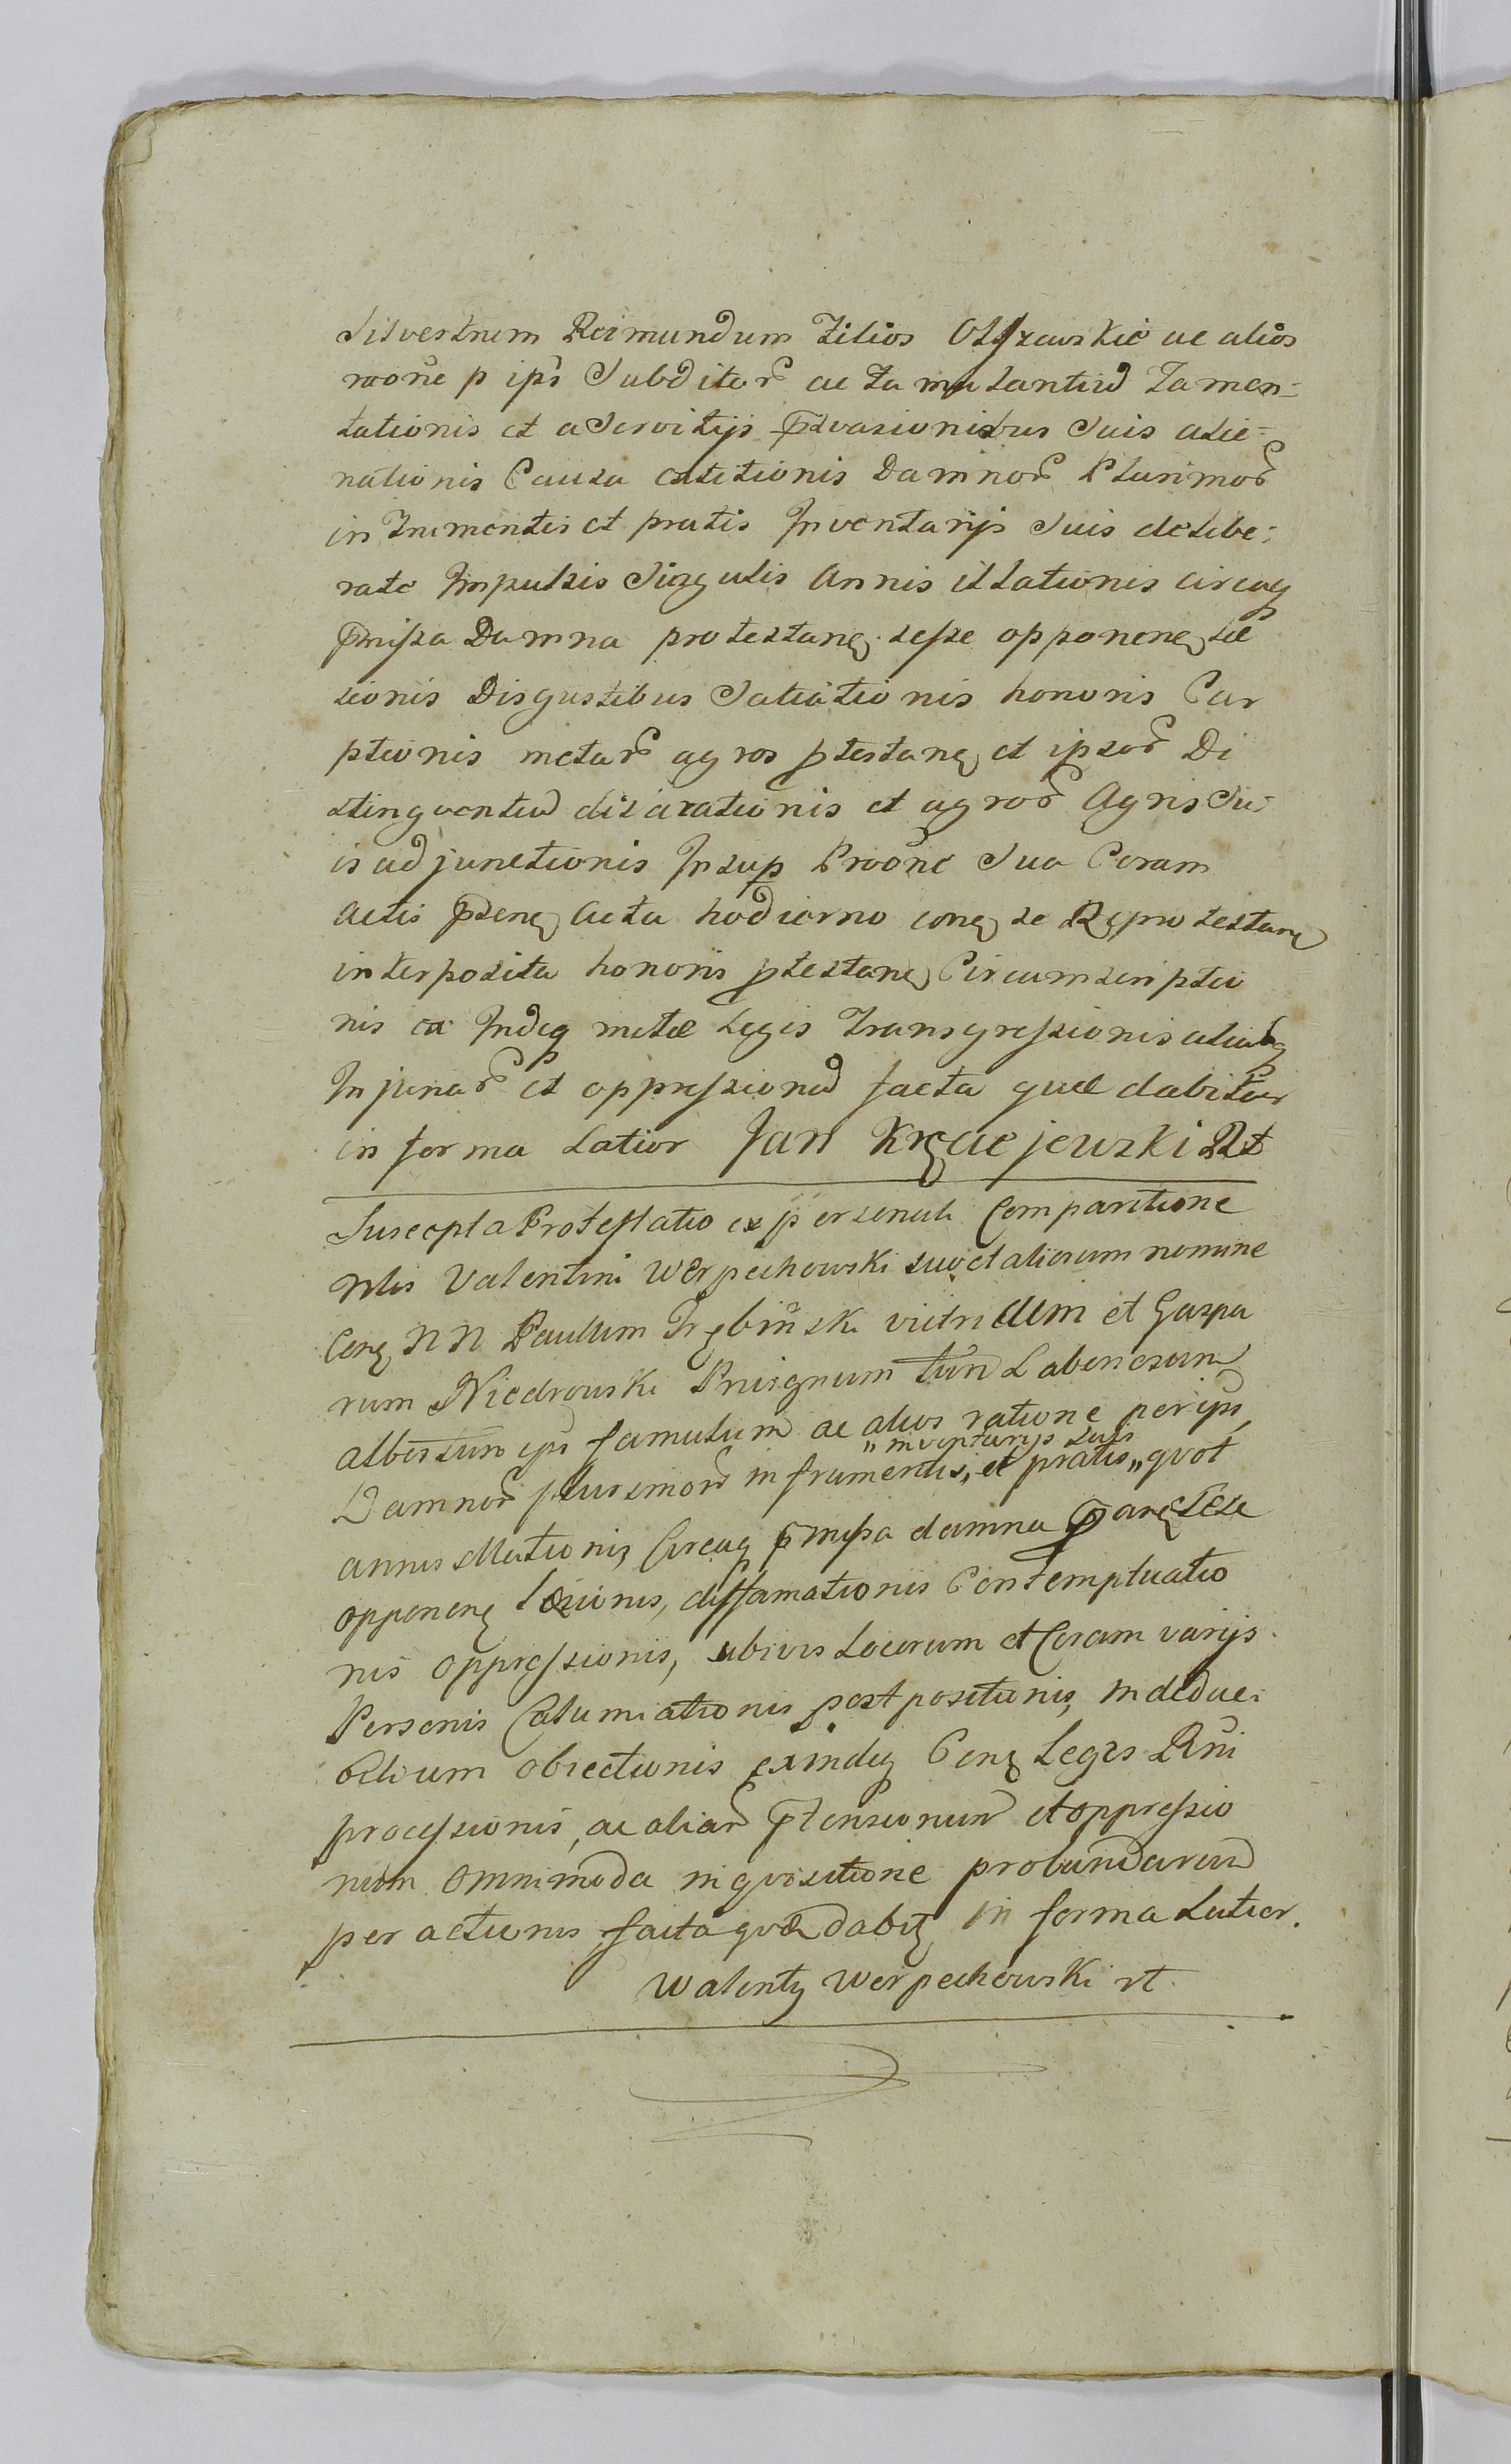 Silvestrum Reimundum Filios Olszewskie ac alios
raõne p ips Subditor ac Famulantiũ Famen-
tationis et a Servitijs Psvasionibus Suis alie-
nationis Causa Damnor Plurimor
in Frumentis et pratis Inventarijs Suis delibe-
rate Impulsis Singulis Annis illationis circaq
pmissa Damna protestane sesse opponene læ
sionis Disgustibus Satiationis honoris Car
ptionis metar agros ptestane et ipsor Di
stinguentiũ disarationis et agror Agris Su-
is adjunctionis Insup Proõne Sua Coram
Actis psene Acta hodierno cone se Reprotestane
interposita honoris ptestane Circumscriptio
nis ex Indeq metæ Legis Transgressionis aliarq
Injuriar et oppressionũ facta quæ dabitur
in forma Latior Jan Krzaejewski Rt
Suscepta Protestatio ex personali Comparitione
Nlis Valentini Werpechowski suo et aliorum nomine
Cone NN Paulum Trębinski vitricum et Gaspa
rum Niedrowski Privignum tũn Laboriosum
Albertum ips famulum ac alios ratione per ips
„inventarijs suis
Damnor plurimor in frumentis, et pratis „ qvot
annis illationis, Circaq pmissa damna Panę sese
opponenę læsionis, diffamationis Contemptuatio
nis oppressionis, ubivis Locorum et Coram varijs
Personis Calumiationis postpositionis, in
odium obiectionis exindeq Conę Leges Rni
processionis, ac aliar ptensionum et oppressio
num omnimoda inqvisitione probandarum
per actionis facta qvæ dabit in forma Latior.
Walenty Werpechowski rt